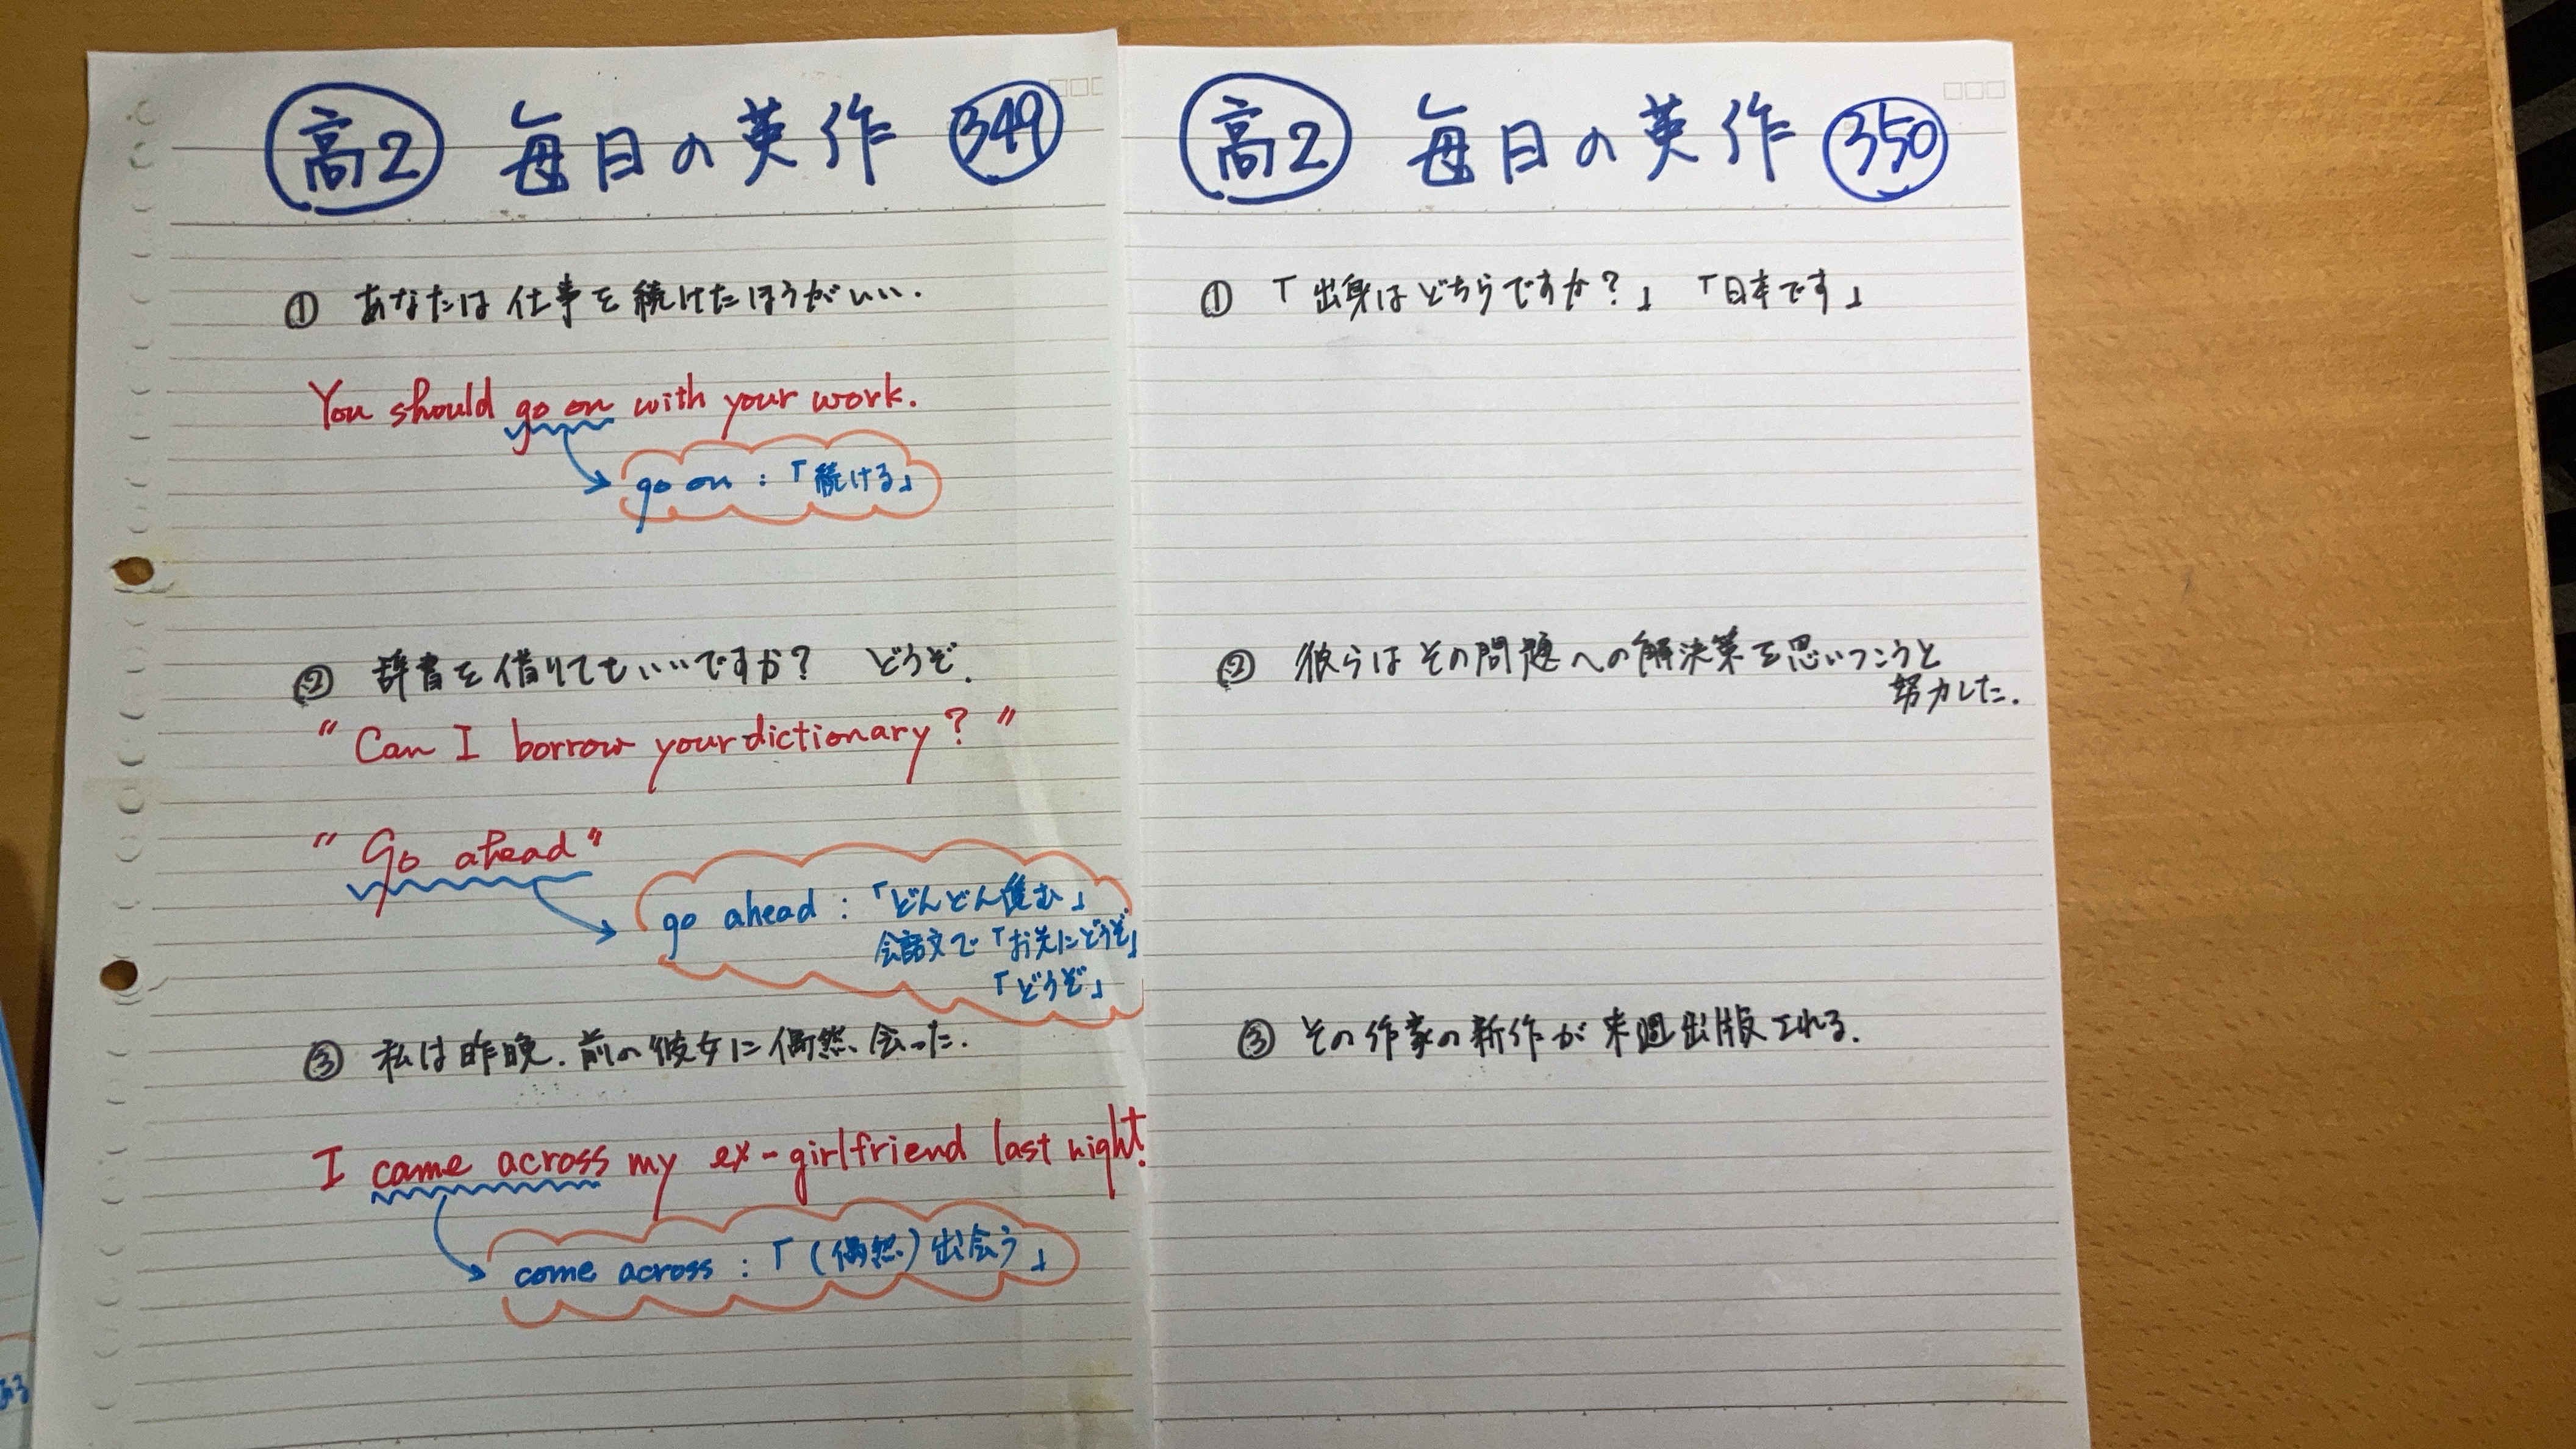 高2 毎日の英作 349
① あなたは仕事を続けたほうがいい.
You should go on with your work.
go on : 「続ける」
② 辞書を借りてもいいですか? どうぞ.
" Can I borrow your dictionary? "
" Go ahead "
go ahead : 「どんどん進む」
会話文で「お先にどうぞ」
「どうぞ」
③ 私は昨晩.前の彼女に偶然会った.
I came across my ex-girlfriend last night.
come across : 「(偶然)出会う」
高2 毎日の英作 350
① 「出身はどちらですか?」 「日本です」
② 彼らはその問題への解決策を思いつこうと
努力した.
③ その作家の新作が来週出版される.